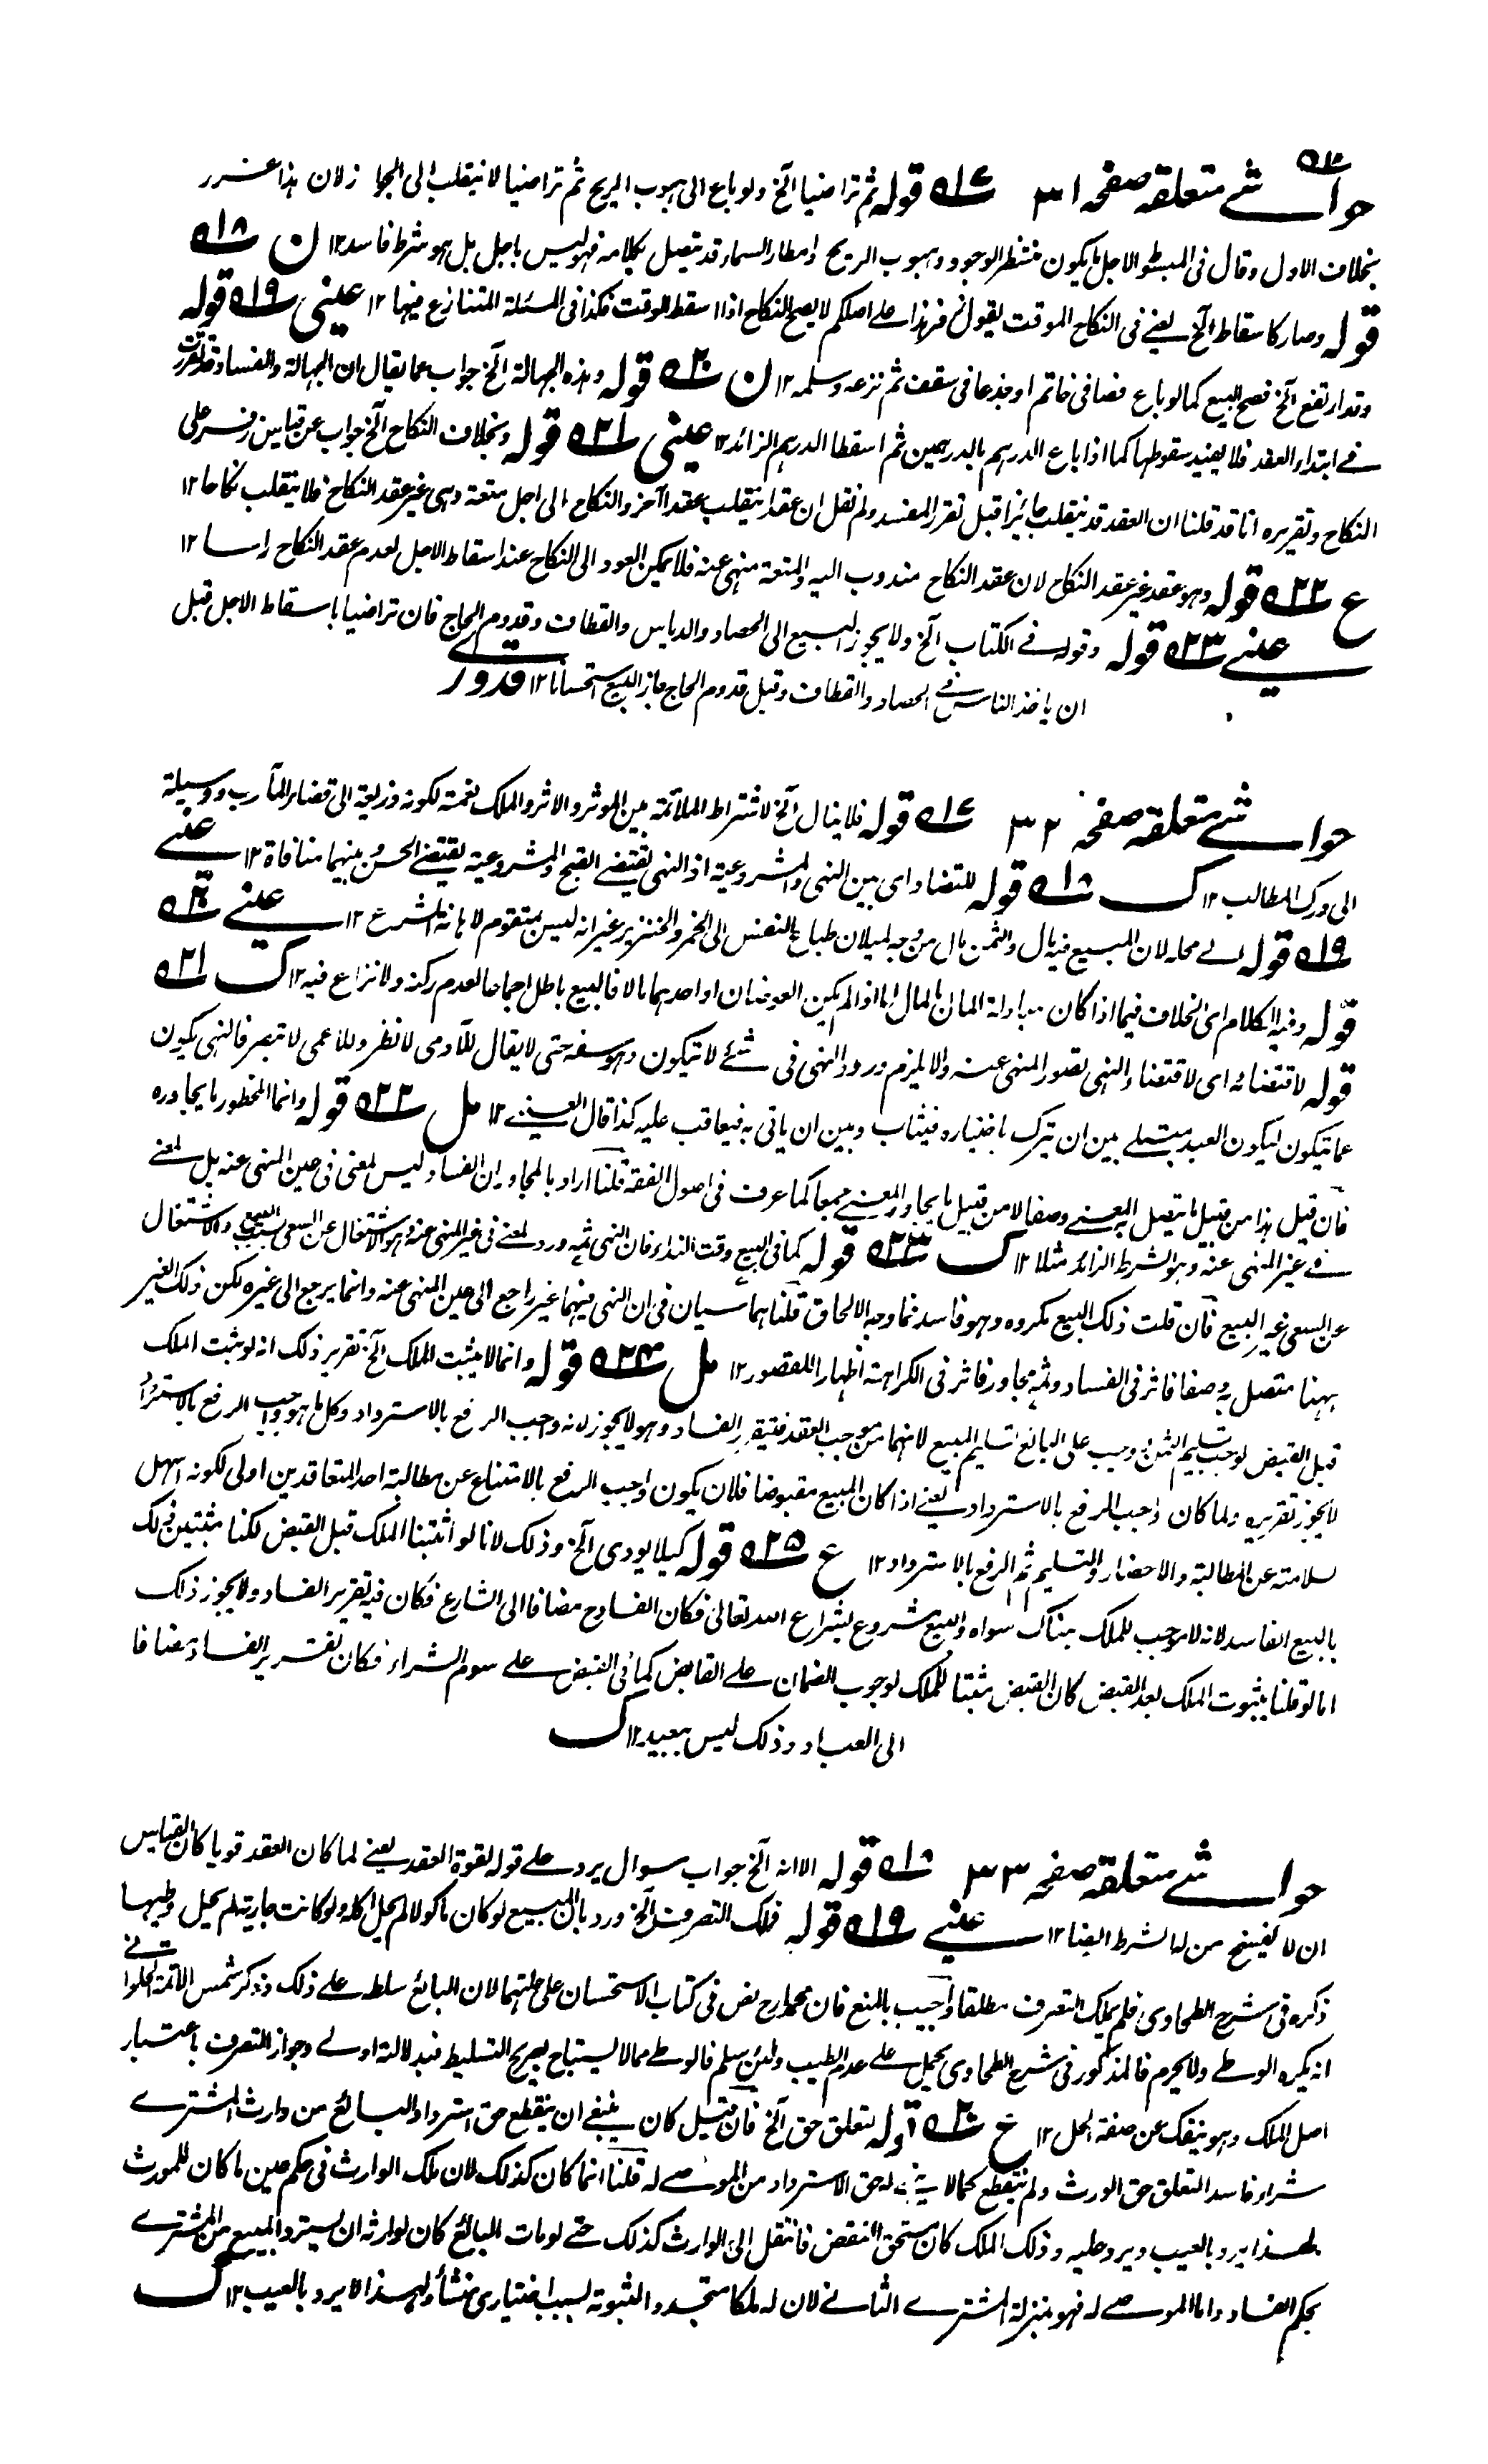 ٥٢
حواشے متعلقہ صفحہ ٣١ ١٧ قولہ ثم تراضیا آلخ ولو باع الی ہبوب الریح ثم تراضیا لا ینقلب الی الجواز لان ہذا غرر
بخلاف الاول وقال فی المبسوط الاجل ما یکون منتظر الوجود وہبوب الریح وامطار السماء قد یتصل بکلامہ فہو لیس باجل بل ہو شرط فاسد ١٢ ن ١٨
قولہ وصار کاسقاط آلخ یعنے فی النکاح الموقت یقول زفر ہذا علے اصلکم لا یصح النکاح اذا اسقط الوقت فکذا فی المسئلة المتنازع فیہا ١٢ عینی ١٩ قولہ
وقد ارتفع آلخ فصح البیع کما لو باع فصا فی خاتم او جذعا فی سقف ثم نزعہ وسلمہ ١٢ ن ٢٠ قولہ وہذہ الجہالة آلخ جواب عما یقال ان الجہالة والفساد قد تقررت
فے ابتداء العقد فلا یفید سقوطہا کما اذا باع الدرہم بالدرہمین ثم اسقطا الدرہم الزائد ١٢ عینی ٢١ قولہ وبخلاف النکاح آلخ جواب عن قیاس زفر علی
النکاح وتقریرہ انا قد قلنا ان العقد قد ینقلب جائزا قبل تقرر المفسد ولم نقل ان عقدا ینقلب عقدا آخر والنکاح الی اجل متعة وہی غیر عقد النکاح فلا ینقلب نکاحا ١٢
ع ٢٢ قولہ وہو عقد غیر عقد النکاح لان عقد النکاح مندوب الیہ والمتعة منہی عنہ فلا یمکن العود الی النکاح عند اسقاط الاجل لعدم عقد النکاح راسا ١٢
عینے ٢٣ قولہ وقولہ فے الکتاب آلخ ولا یجوز البیع الی الحصاد والدیاس والقطاف وقدوم الحاج فان تراضیا باسقاط الاجل قبل
ان یاخذ الناس فے الحصاد والقطاف وقبل قدوم الحاج جاز البیع استحسانا ١٢ قدوری
حواشے متعلقہ صفحہ ٣٢ ١٧ قولہ فلا ینال آلخ لاشتراط الملائمة بین الموثر والاثر والملک نعمة لکونہ ذریعة الی قضاء المآرب ووسیلة
الی درک المطالب ١٢ ک ١٨ قولہ للتضاد ای بین النہی والمشروعیة اذ النہی یقتضے القبح والمشروعیة یقتضے الحسن وبینہما منافاة ١٢ عینے
١٩ قولہ فے محلہ لان المبیع فیہ مال والثمن مال من وجہ لمیلان طباع النفس الی الخمر والخنزیر غیر انہ لیس بمتقوم لاہانة الشرع ١٢ عینے ٢٠
قولہ وفیہ الکلام ای الخلاف فیما اذا کان مبادلة المال بالمال اما اذا لم یکن العوضان او احدہما مالا فالبیع باطل اجماعا لعدم رکنہ ولا نزاع فیہ ١٢ ک ٢١
قولہ لاقتضائہ ای لاقتضاء النہی تصور المنہی عنہ والا یلزم ورود النہی فی شئے لا یتکون وہو سفہ حتی لا یقال للآدمی لا تطر وللاعمی لا تبصر فالنہی یکون
عما یتکون لیکون العبد مبتلے بین ان یترک باختیارہ فیثاب وبین ان یاتی بہ فیعاقب علیہ کذا قال العینے ١٢ مل ٢٢ قولہ وانما المحظور ما یجاورہ
فان قیل ہذا من قبیل ما یتصل بالعین وصفا لا من قبیل ما یجاور المعنے جمعا کما عرف فی اصول الفقہ قلنا اراد بالمجاور ان الفساد لیس لمعنی فی عین المنہی عنہ بل لمعنے
فے غیر المنہی عنہ وہو الشرط الزائد مثلا ١٢ ک ٢٣ قولہ کما فی البیع وقت النداء فان النہی ثمہ ورد لمعنے فی غیر المنہی عنہ وہو الاشتغال عن السعی بسبب البیع والاشتغال
عن السعی غیر البیع فان قلت ذلک البیع مکروہ وہو فاسد فما وجہ الالحاق قلنا ہما سیان فی ان النہی فیہما غیر راجع الی عین المنہی عنہ وانما یرجع الی غیرہ لکن ذلک الغیر
ہہنا متصل بہ وصفا فاثر فی الفساد وثمہ مجاور فاثر فی الکراہتہ اظہارا للقصور ١٢ مل ٢٤ قولہ وانما لا یثبت الملک آلخ تقریر ذلک انہ لو ثبت الملک
قبل القبض لوجب تسلیم الثمن ویجب علی البائع تسلیم المبیع لانہما من موجب العقد فیتقرر الفساد وہو لا یجوز لانہ واجب الرفع بالاسترداد وکل ما ہو واجب الرفع بالاسترداد
لا یجوز تقریرہ ولما کان واجب الرفع بالاسترداد یعنے اذا کان المبیع مقبوضا فلان یکون واجب الرفع بالامتناع عن مطالبة احد المتعاقدین اولی لکونہ اسہل
سلامتہ عن المطالبة والاحضار والتسلیم ثم الرفع بالاسترداد ١٢ ع ٢٥ قولہ کیلا یودی آلخ وذلک لانا لو اثبتنا الملک قبل القبض لکنا مثبتین ذلک
بالبیع الفاسد لانہ لا موجب للملک ہناک سواہ والبیع مشروع بشراع اللہ تعالی فکان الفساد ح مضافا الی الشارع فکان فیہ تقریر الفساد ولا یجوز ذلک
اما لو قلنا بثبوت الملک بعد القبض کان القبض مثبتا للملک لوجوب الضمان علے القابض کما فی القبض علے سوم الشراء فکان تقریر الفساد مضافا
الی العباد وذلک لیس ببعید ١٢ ک
حواشے متعلقہ صفحہ ٣٣ ١٨ قولہ الا انہ آلخ جواب سوال یرد علے قولہ لقوة العقد یعنے لما کان العقد قویا کان القیاس
ان لا یفسخ من لہ الشرط ایضا ١٢ عینے ١٩ قولہ فملک التصرف آلخ ورد بان المبیع لو کان ماکولا لم یحل اکلہ ولو کانت جاریة لم یحل وطیہا
ذکرہ فی شرح الطحاوی فلم یملک التصرف مطلقا واجیب بالمنع فان محمدا رح نص فی کتاب الاستحسان علی حلتہما لان البائع سلطہ علے ذلک وذکر شمس الائمة الحلوانے
انہ یکرہ الوطے ولا یحرم فالمذکور فی شرح الطحاوی یحمل علے عدم الطیب ولئن سلم فالوطے مما لا یستباح بصریح التسلیط فبدلالة اولے وجواز التصرف باعتبار
اصل الملک وہو ینفک عن صفة الحل ١٢ ع ٢٠ قولہ لتعلق حق آلخ فان قیل کان ینبغے ان ینقطع حق استرداد البائع من وارث المشترے
شراء فاسدا لتعلق حق الورث ولم ینقطع کما لا حق الاسترداد من الموصے لہ قلنا انما کان کذلک لان ملک الوارث فی حکم عین ما کان للمورث
لہذا یرد بالعیب ویرد علیہ وذلک الملک کان مستحق النقض فانتقل الی الوارث کذلک حتے لو مات البائع کان لوارثہ ان یسترد المبیع من المشترے
بحکم الفساد واما الموصے لہ فہو بمنزلة المشترے الثانے لان لہ ملکا متجددا لثبوتہ بسبب اختیاری منشأ ولہذا لا یرد بالعیب ١٢ ک